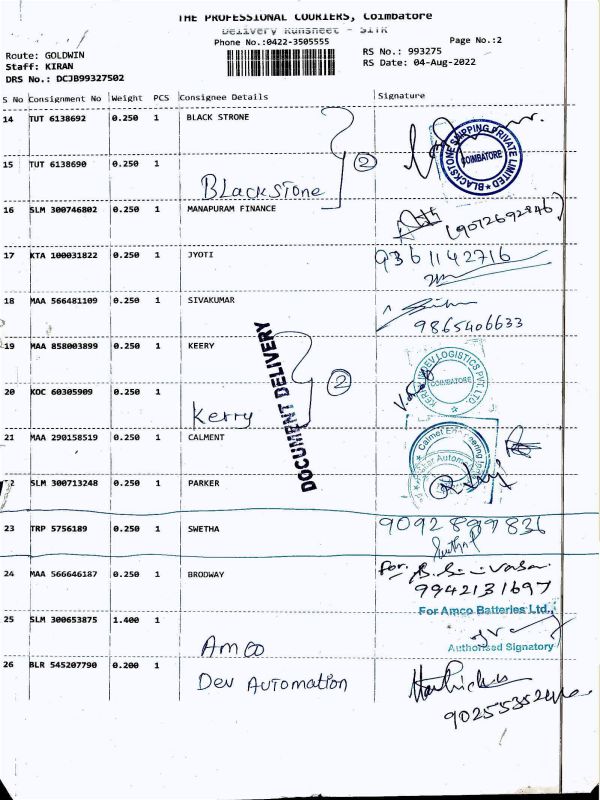 THE PROFESSIONAL COURIERS, Coimbatore
Delivery Runsheet - SITR
Phone No.:0422-3505555
Page No.:2
Route: GOLDWIN
RS No.: 993275
Staff: KIRAN
RS Date: 04-Aug-2022
DRS No.: DCJB99327502
S No Consignment No Weight PCS Consignee Details Signature
14 TUT 6138692 0.250 1 BLACK STRONE
BLACKSTONE SHIPPING PRIVATE LIMITED
COIMBATORE
15 TUT 6138690 0.250 1
2
Blackstone
16 SLM 300746802 0.250 1 MANAPURAM FINANCE
(9012692846)
17 KTA 100031822 0.250 1 JYOTI
9361142716
18 MAA 566481109 0.250 1 SIVAKUMAR
9865406633
19 MAA 858003899 0.250 1 KEERY
DOCUMENT DELIVERY
LOGISTICS PVT. LTD
COIMBATORE
20 KOC 60305909 0.250 1
2
Kerry
21 MAA 290158519 0.250 1 CALMENT
SLM 300713248 0.250 1 PARKER
23 TRP 5756189 0.250 1 SWETHA
9092899836
24 MAA 566646187 0.250 1 BRODWAY
for.
9942131697
25 SLM 300653875 1.400 1
For Amco Batteries Ltd.,
Amco
Authorised Signatory
26 BLR 545207790 0.200 1
Dev Automation